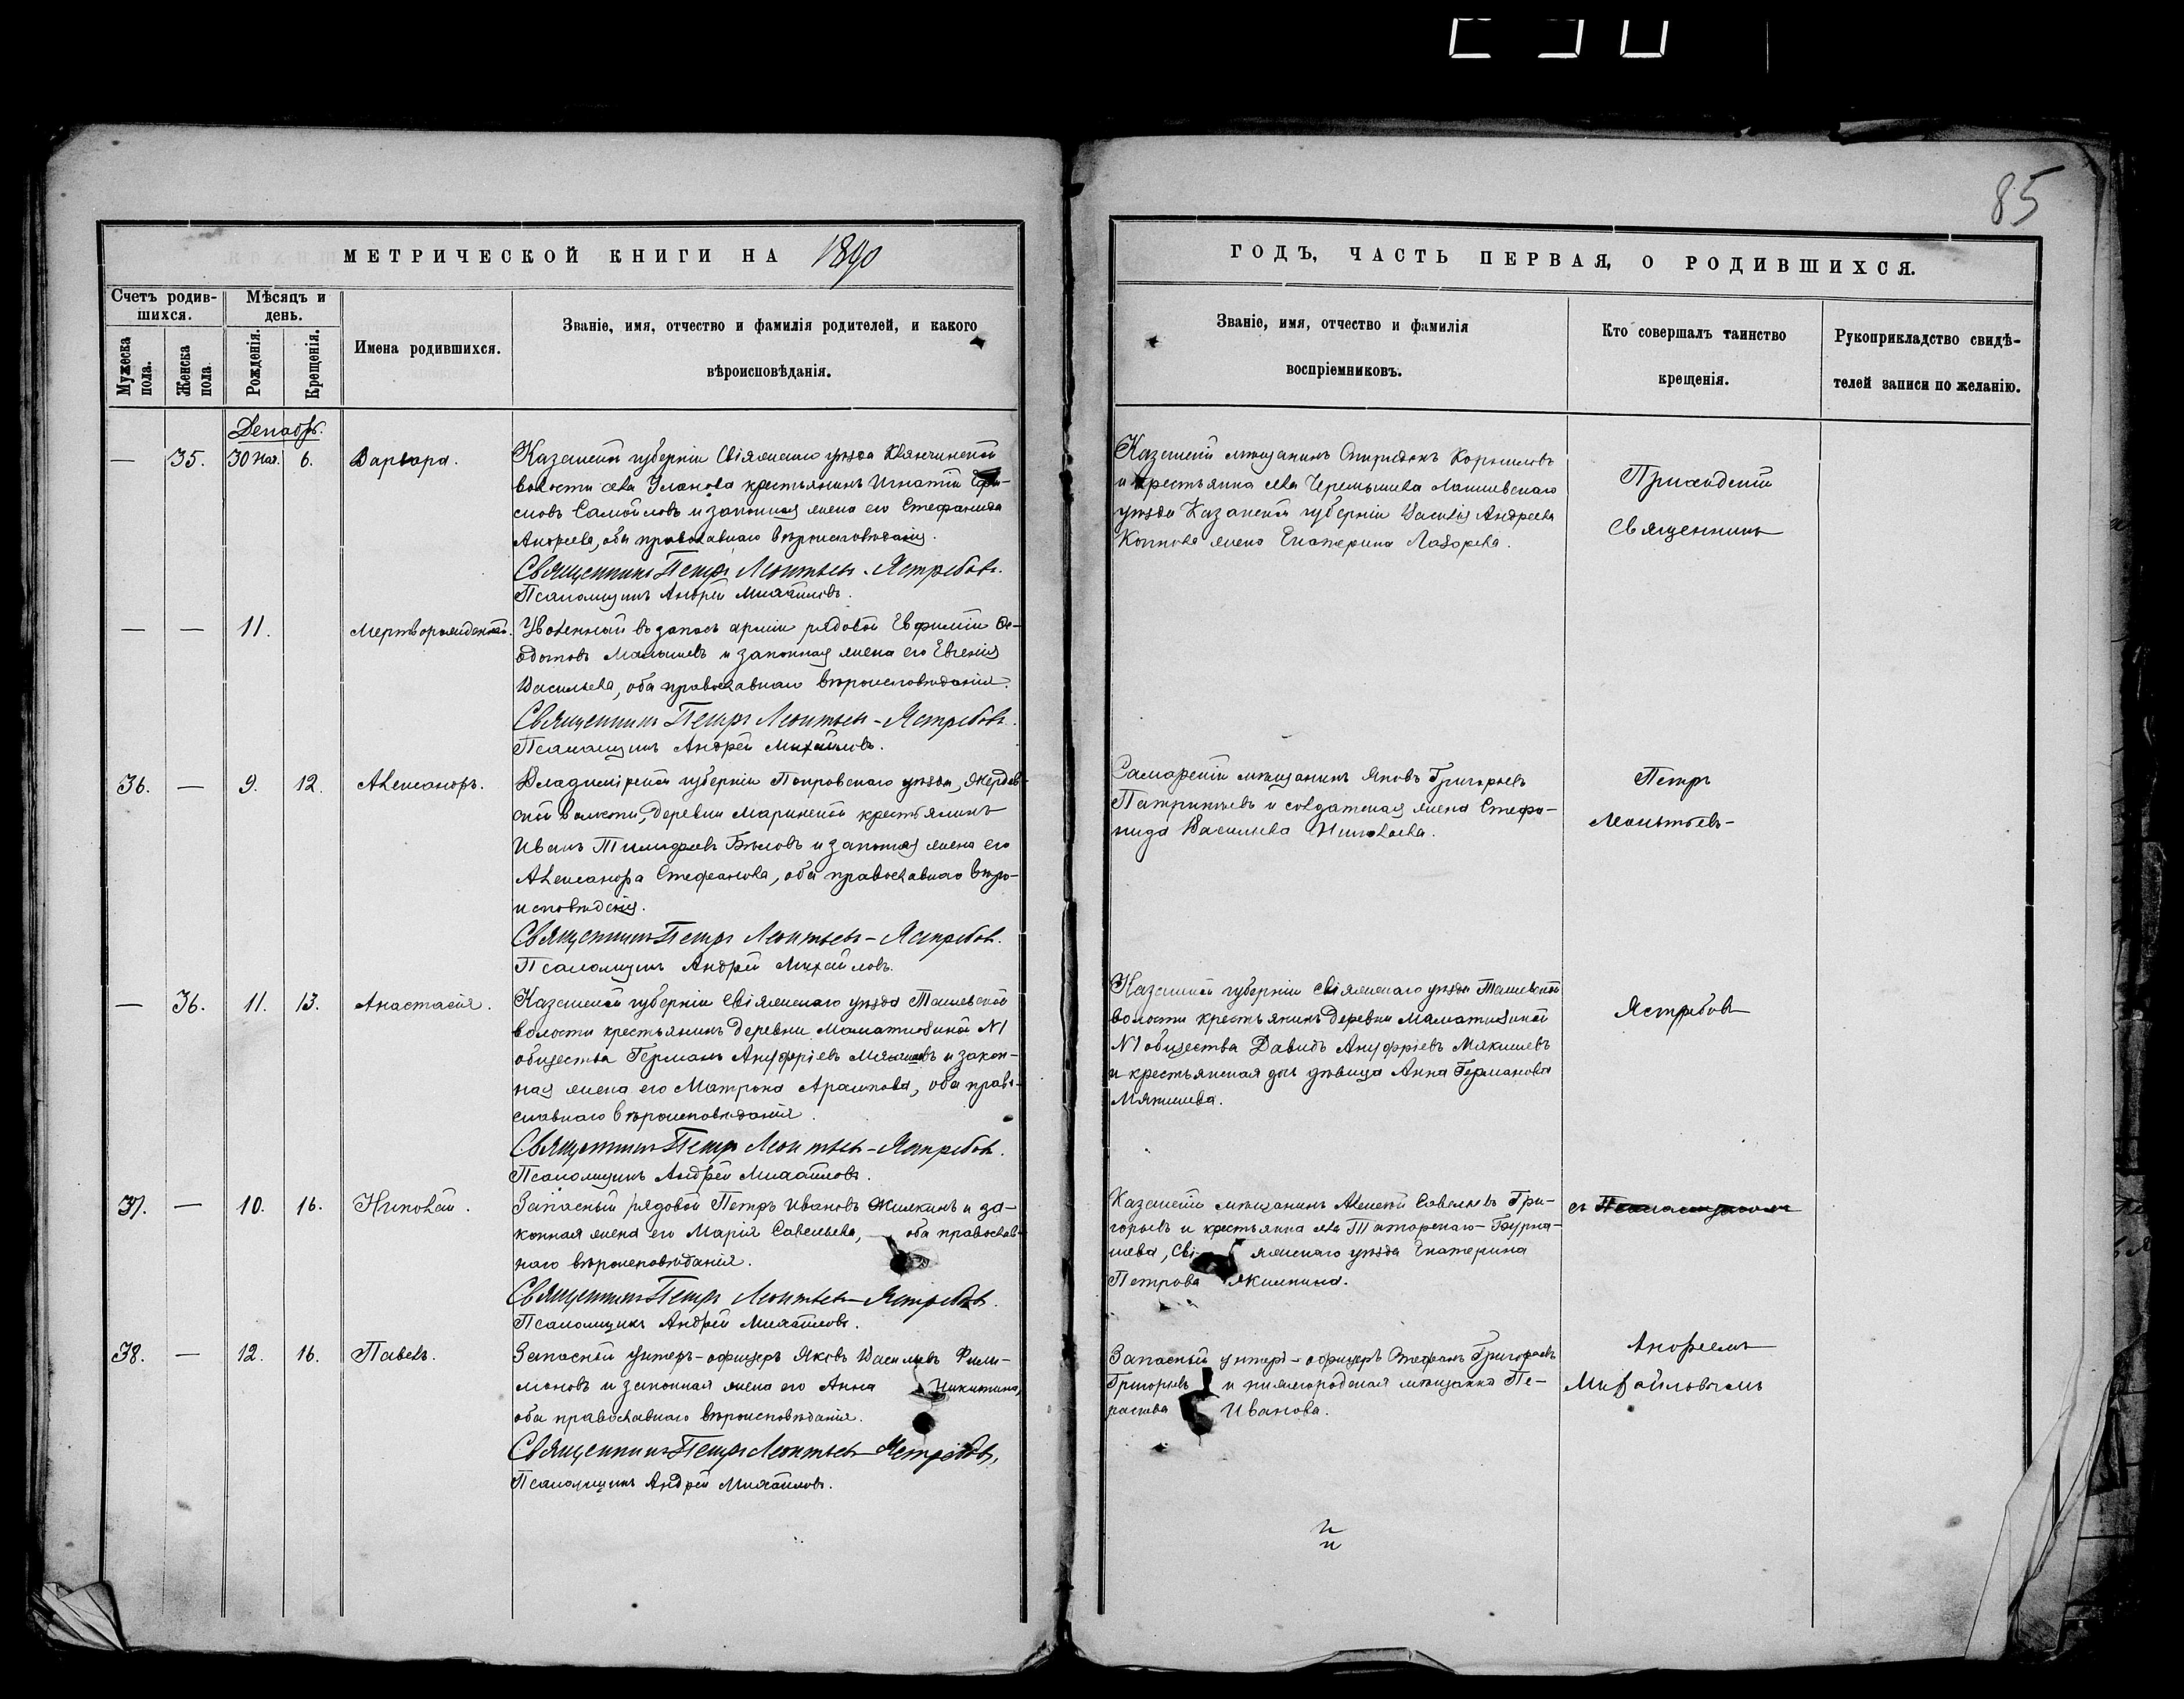 85
МЕТРИЧЕСКОЙ КНИГИ НА 1890
Счетъ родив-
шихся.
Мѣсяцъ и
день.
Мужеска
пола.
Женска
пола.
Рожденія.
Крещенія.
Имена родившихся.
Званіе, имя, отчество и фамилія родителей, и какого
вѣроисповѣданія.
Декабрь.
— 35. 30 Ноя. 6. Варвара.
Казанской губерніи Свіяжскаго уѣзда
волости села Уланова крестьянинъ Игнатій
Самойловъ и законная жена его Стефанида
Андреева, оба православнаго вѣроисповѣданія.
Священникъ Петръ Леонтьевъ-Ястребовъ.
Псаломщикъ Андрей Михайловъ.
— — 11. Мертворожденный.
Уволенный въ запасъ арміи рядовой Евфимій Ѳе-
одотовъ Малышевъ и законная жена его Евгенія
Васильева, оба православнаго вѣроисповѣданія.
Священникъ Петръ Леонтьевъ-Ястребовъ.
Псаломщикъ Андрей Михайловъ.
36. — 9. 12. Александръ.
Владимірской губерніи Покровскаго уѣзда,
ской волости, деревни Маринской крестьянинъ
Иванъ Тимофеевъ Бѣловъ и законная жена его
Александра Стефанова, оба православнаго вѣро-
исповѣданія.
Священникъ Петръ Леонтьевъ-Ястребовъ.
Псаломщикъ Андрей Михайловъ.
— 36. 11. 13. Анастасія.
Казанской губерніи Свіяжскаго уѣзда Ташевской
волости крестьянинъ деревни Маматкозиной №1
общества Германъ Ануфріевъ Мякишевъ и закон-
ная жена его Матрона Архипова, оба право-
славнаго вѣроисповѣданія.
Священникъ Петръ Леонтьевъ-Ястребовъ.
Псаломщикъ Андрей Михайловъ.
37. — 10. 16. Николай.
Запасный рядовой Петръ Ивановъ Жилкинъ и за-
конная жена его Марія Савельева, оба православ-
наго вѣроисповѣданія.
Священникъ Петръ Леонтьевъ-Ястребовъ.
Псаломщикъ Андрей Михайловъ.
38. — 12. 16. Павелъ.
Запасный унтеръ-офицеръ Яковъ Васильевъ Фили-
моновъ и законная жена его Анна Никитина,
оба православнаго вѣроисповѣданія.
Священникъ Петръ Леонтьевъ-Ястребовъ,
Псаломщикъ Андрей Михайловъ.
ГОДЪ, ЧАСТЬ ПЕРВАЯ, О РОДИВШИХСЯ.
Званіе, имя, отчество и фамилія
воспріемниковъ.
Кто совершалъ таинство
крещенія.
Рукоприкладство свидѣ-
телей записи по желанію.
Казанскій мѣщанинъ Спиридонъ Корниловъ
и крестьянка села Черемышева Лаишевскаго
уѣзда Казанской губерніи Василія Андреева
жена Екатерина Лазарева.
Самарскій мѣщанинъ Яковъ Григорьевъ
Патрикѣевъ и солдатская жена Стефа-
нида Васильева Николаева.
Казанской губерніи Свіяжскаго уѣзда Ташевской
волости крестьянинъ деревни Маматкозиной
№1 общества Давидъ Ануфріевъ Мякишевъ
и крестьянская дочь дѣвица Анна Германова
Мякишева.
Казанскій мѣщанинъ Алексѣй Савельевъ Гри-
горьевъ и крестьянка села Татарскаго-Бурна-
шева, Свіяжскаго уѣзда Екатерина
Петрова Якимкина.
Запасный унтеръ-офицеръ Стефанъ Григорьевъ
Григорьевъ и нижегородская мѣщанка Пе-
лагея Иванова.
Приходскій
Священникъ
Петръ
Леонтьевъ-
Ястребовъ
съ Псаломщикомъ
Андреемъ
Михайловымъ